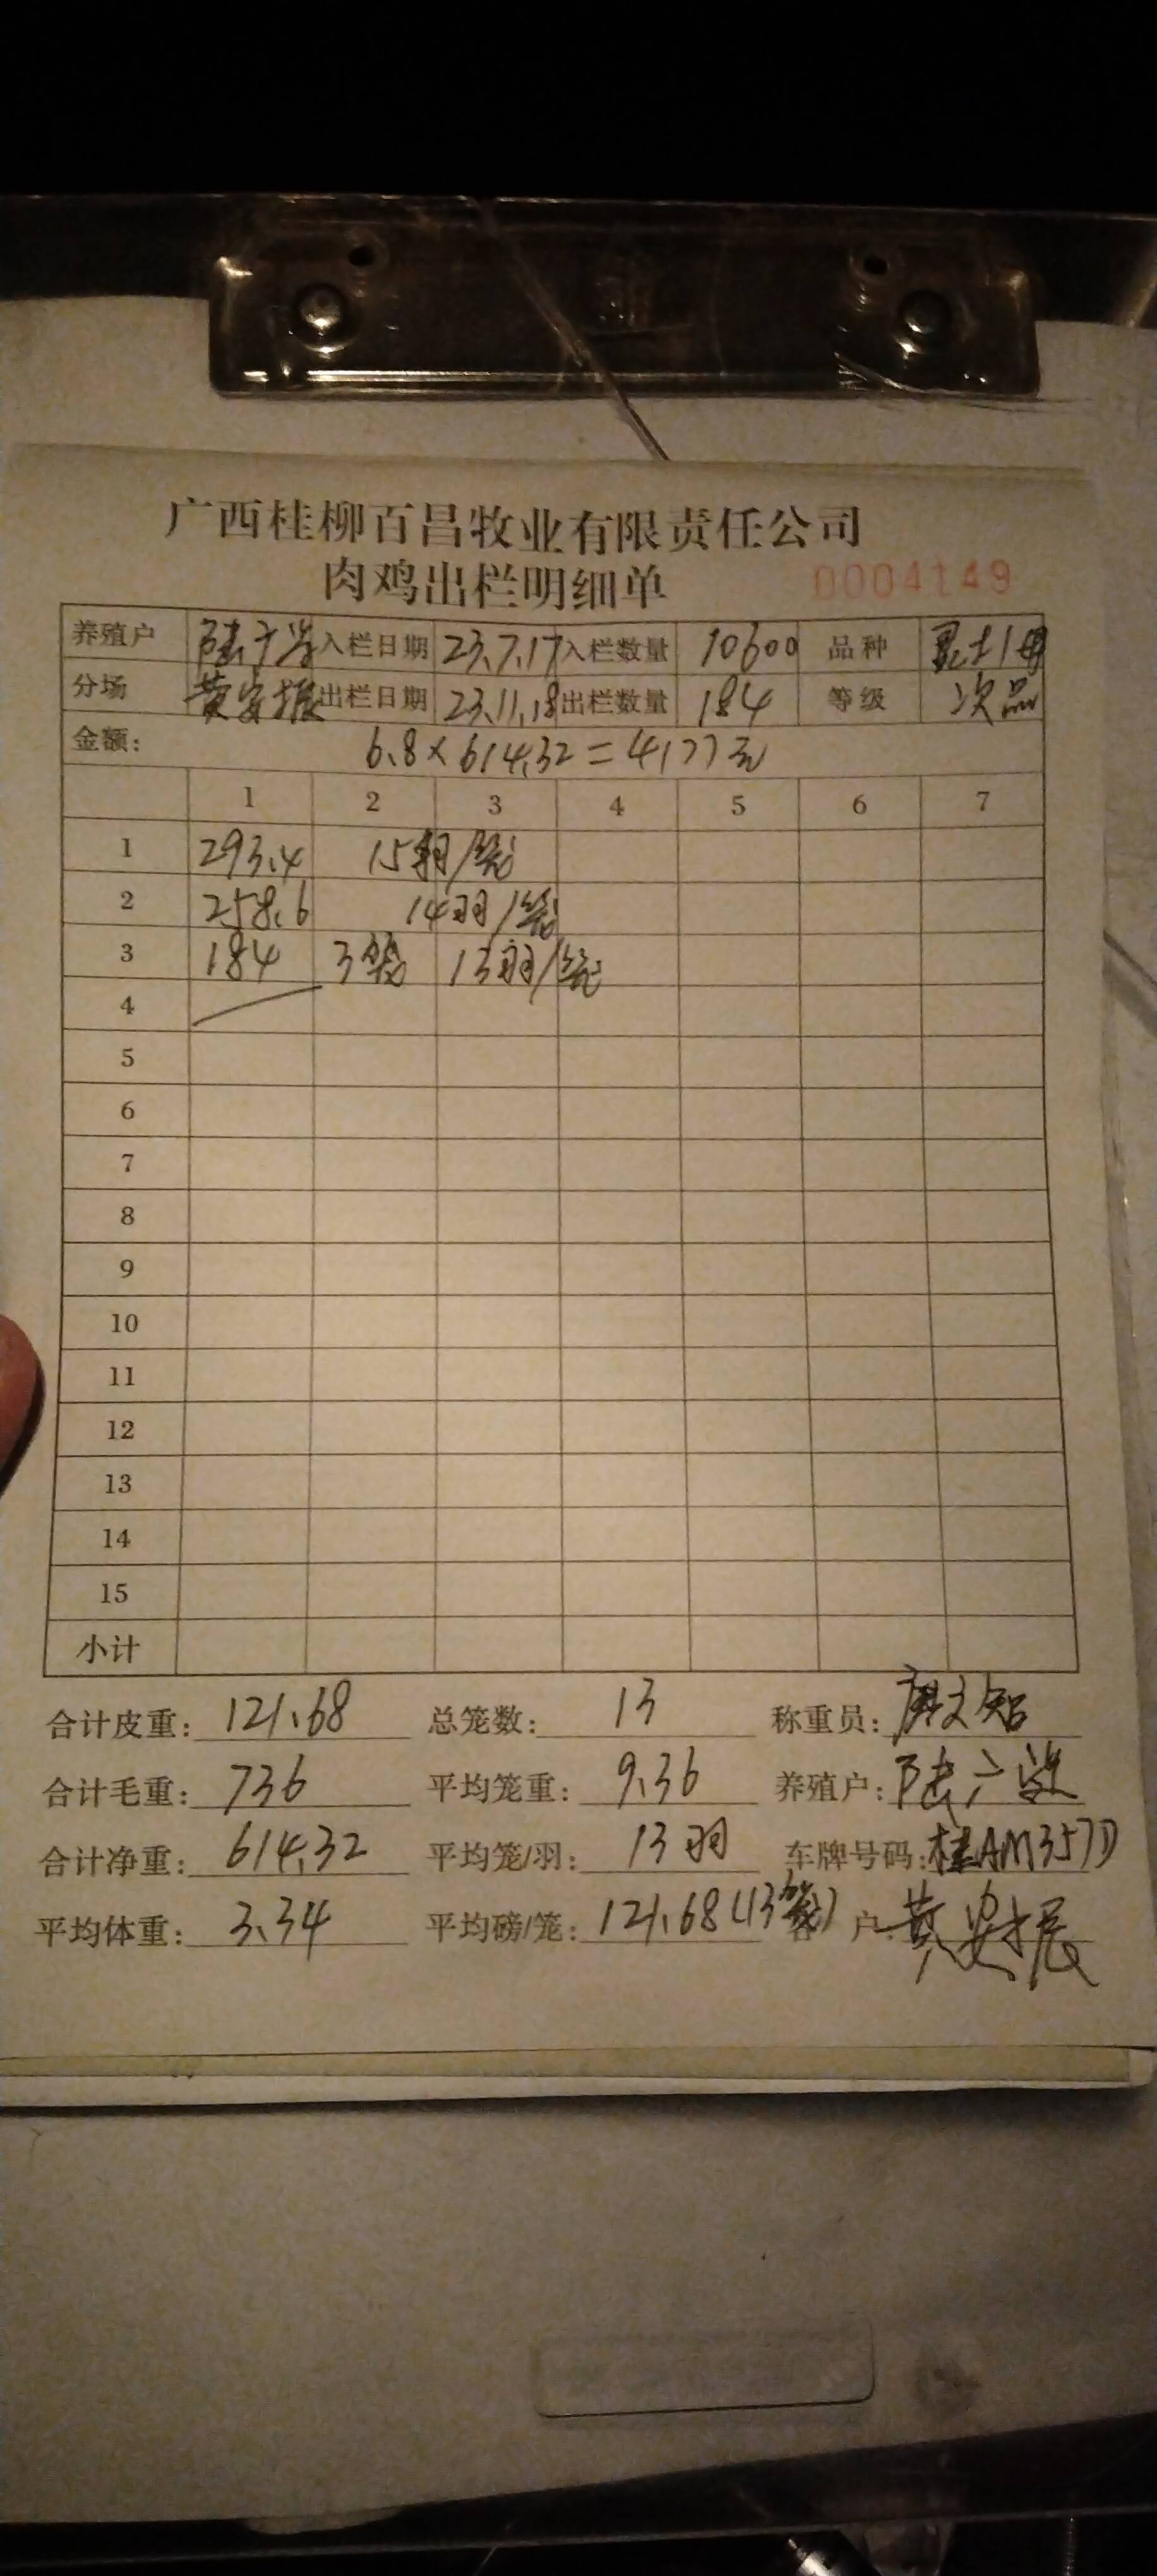 广西桂柳百昌牧业有限责任公司
肉鸡出栏明细单 0004149
养殖户 入栏日期 23.7.17 入栏数量 10600 品种
分场 黄安振 出栏日期 23.11.18 出栏数量 184 等级 次品
金额: 6.8×614.32=4177元
1 2 3 4 5 6 7
1 293.4 15羽/笼
2 258.6 14羽/笼
3 184 3笼 13羽/笼
4
5
6
7
8
9
10
11
12
13
14
15
小计
合计皮重: 121.68 总笼数: 13 称重员:
合计毛重: 736 平均笼重: 9.36 养殖户:
合计净重: 614.32 平均笼/羽: 13羽 车牌号码: 桂AM357D
平均体重: 3.34 平均磅/笼: 121.68(13笼) 客 户: 黄安振